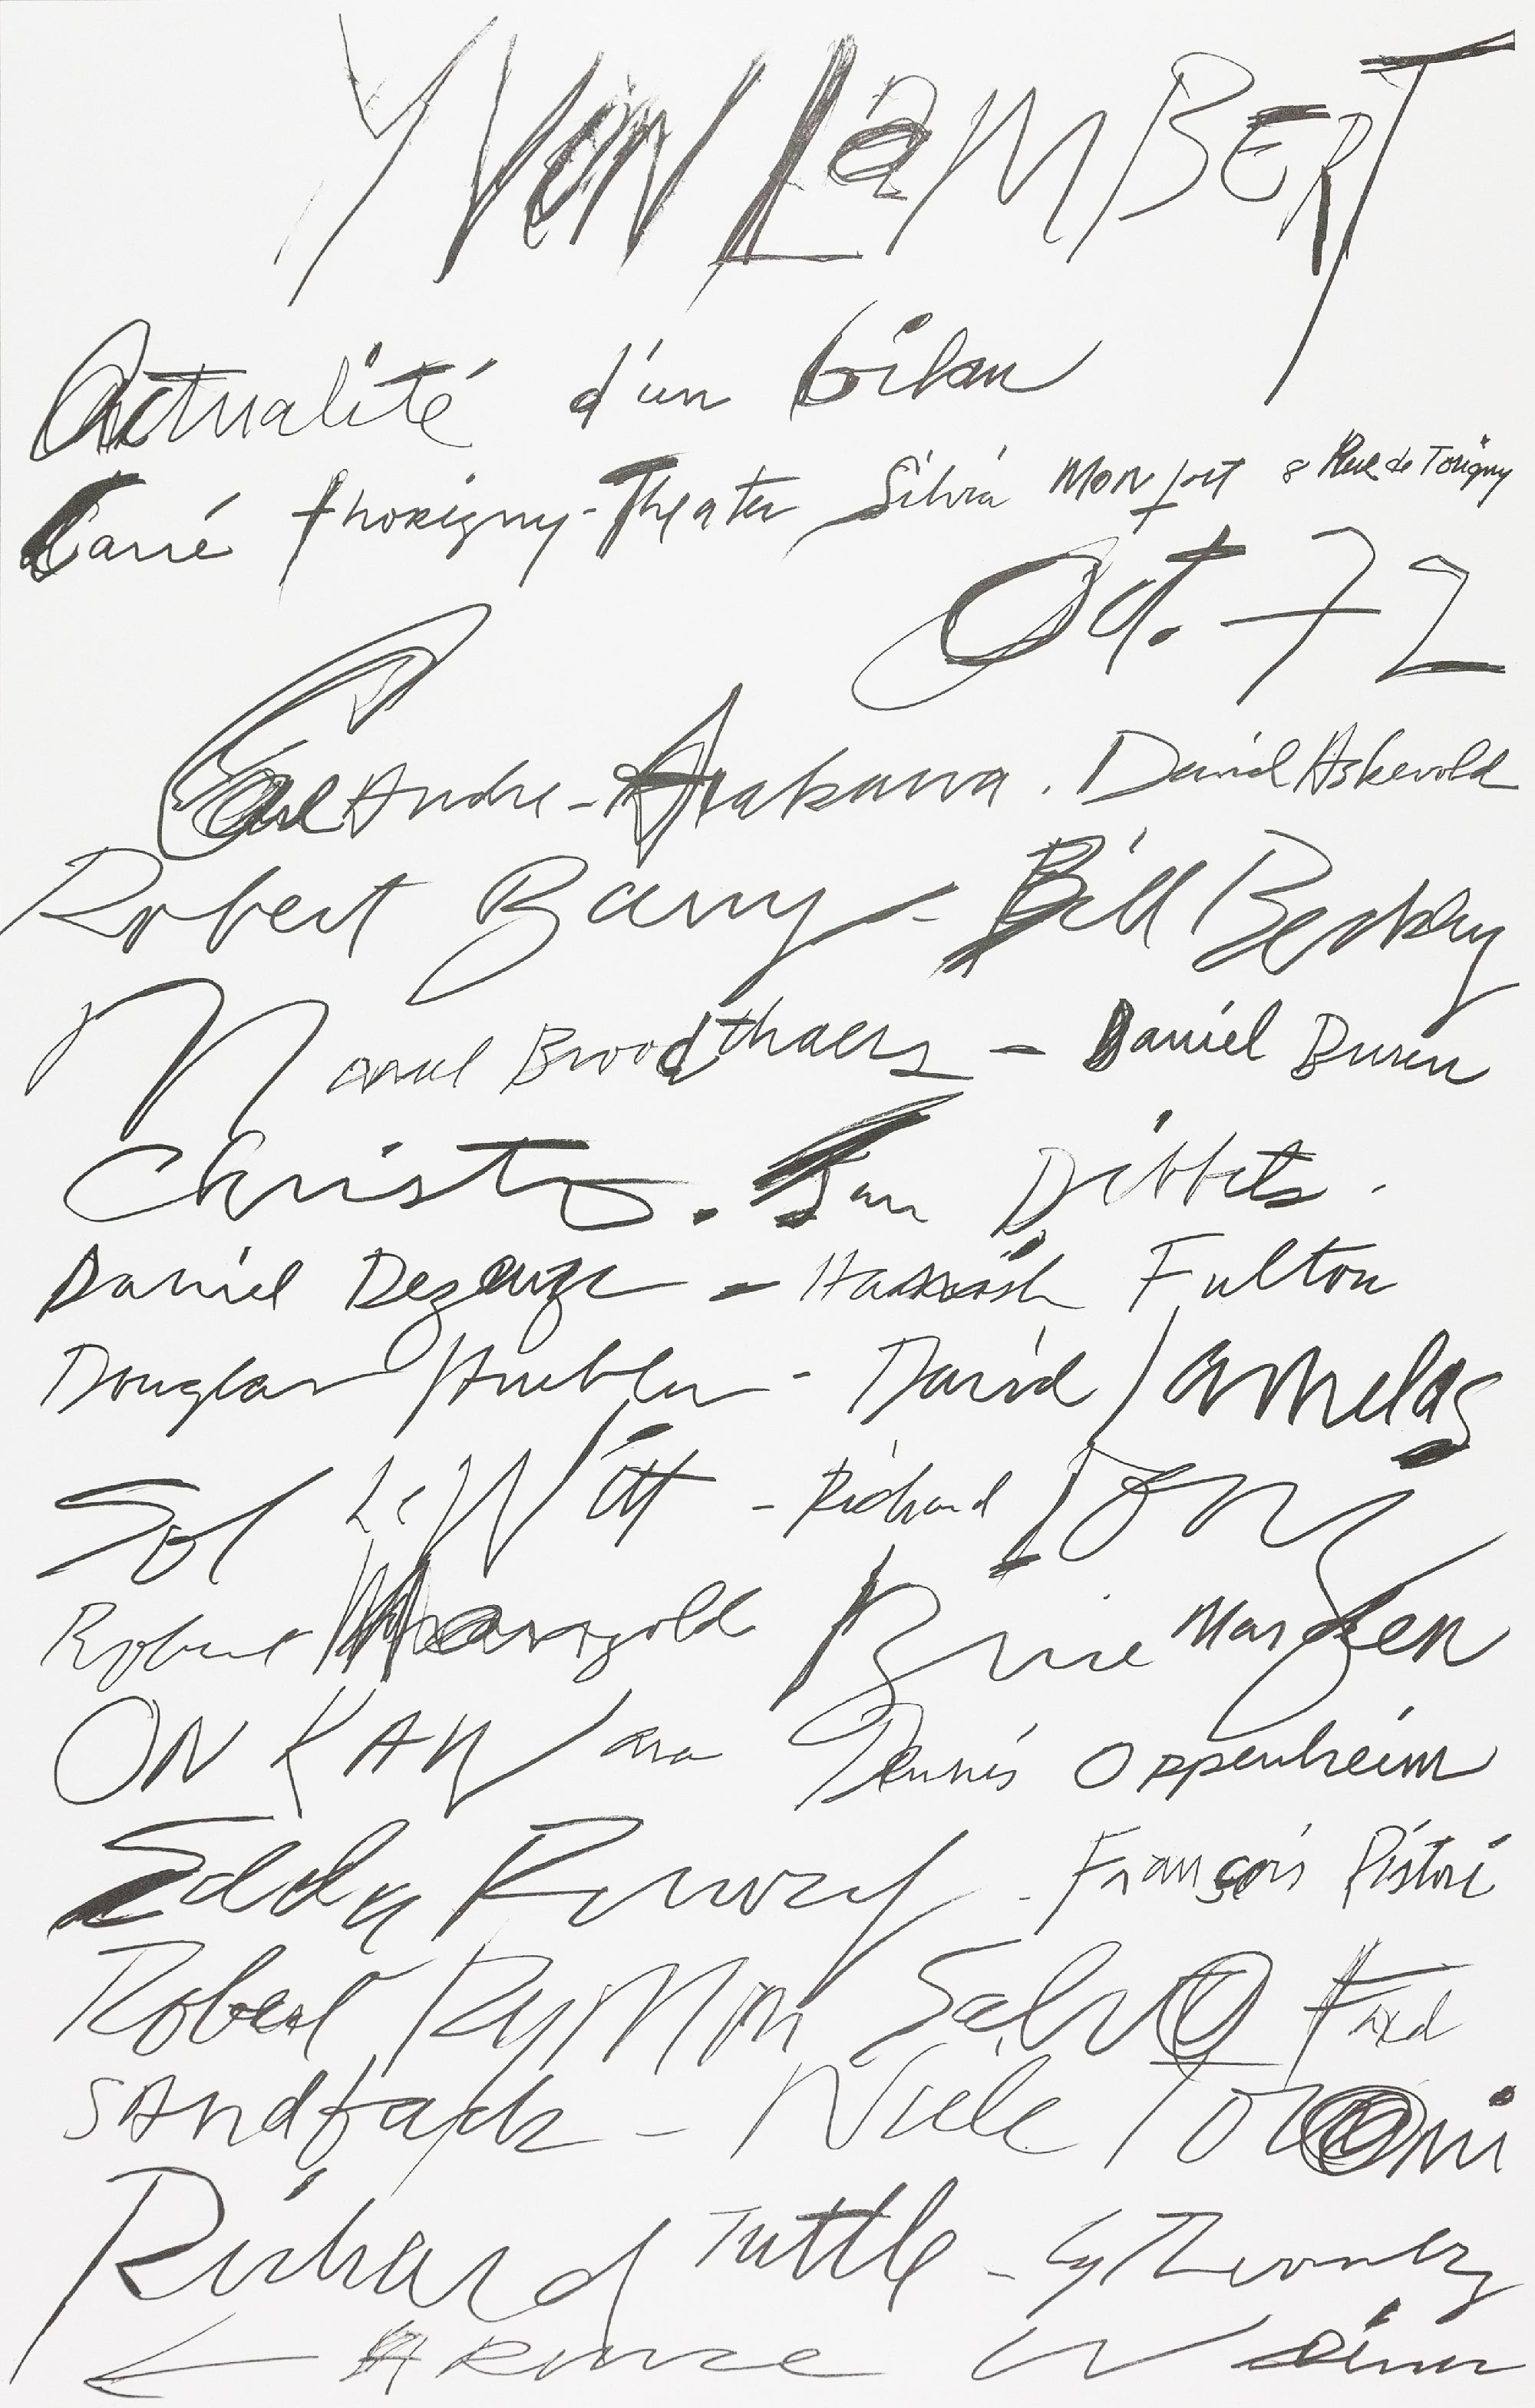 YVON LAMBERT
Actualité d'un bilan
Carré Thorigny-Theater Silvia Monfort 8 Rue de Torigny
Oct. 72
Carl Andre - Arakawa . David Askevold
Robert Barry - Bill Beckley
Marcel Broodthaers - Daniel Buren
Christo. Jan Dibbets.
Daniel Dezeuze - Hamish Fulton
Douglas Huebler - David Lamelas
Sol LeWitt - Richard Long
Robert Mangold Brice Marden
ON KAWara Dennis Oppenheim
Edda Renouf - François Pistre
Robert Ryman Salvo Fred
Sandback - Niele Toroni
Richard Tuttle - Cy Twombly
Larence Weiner